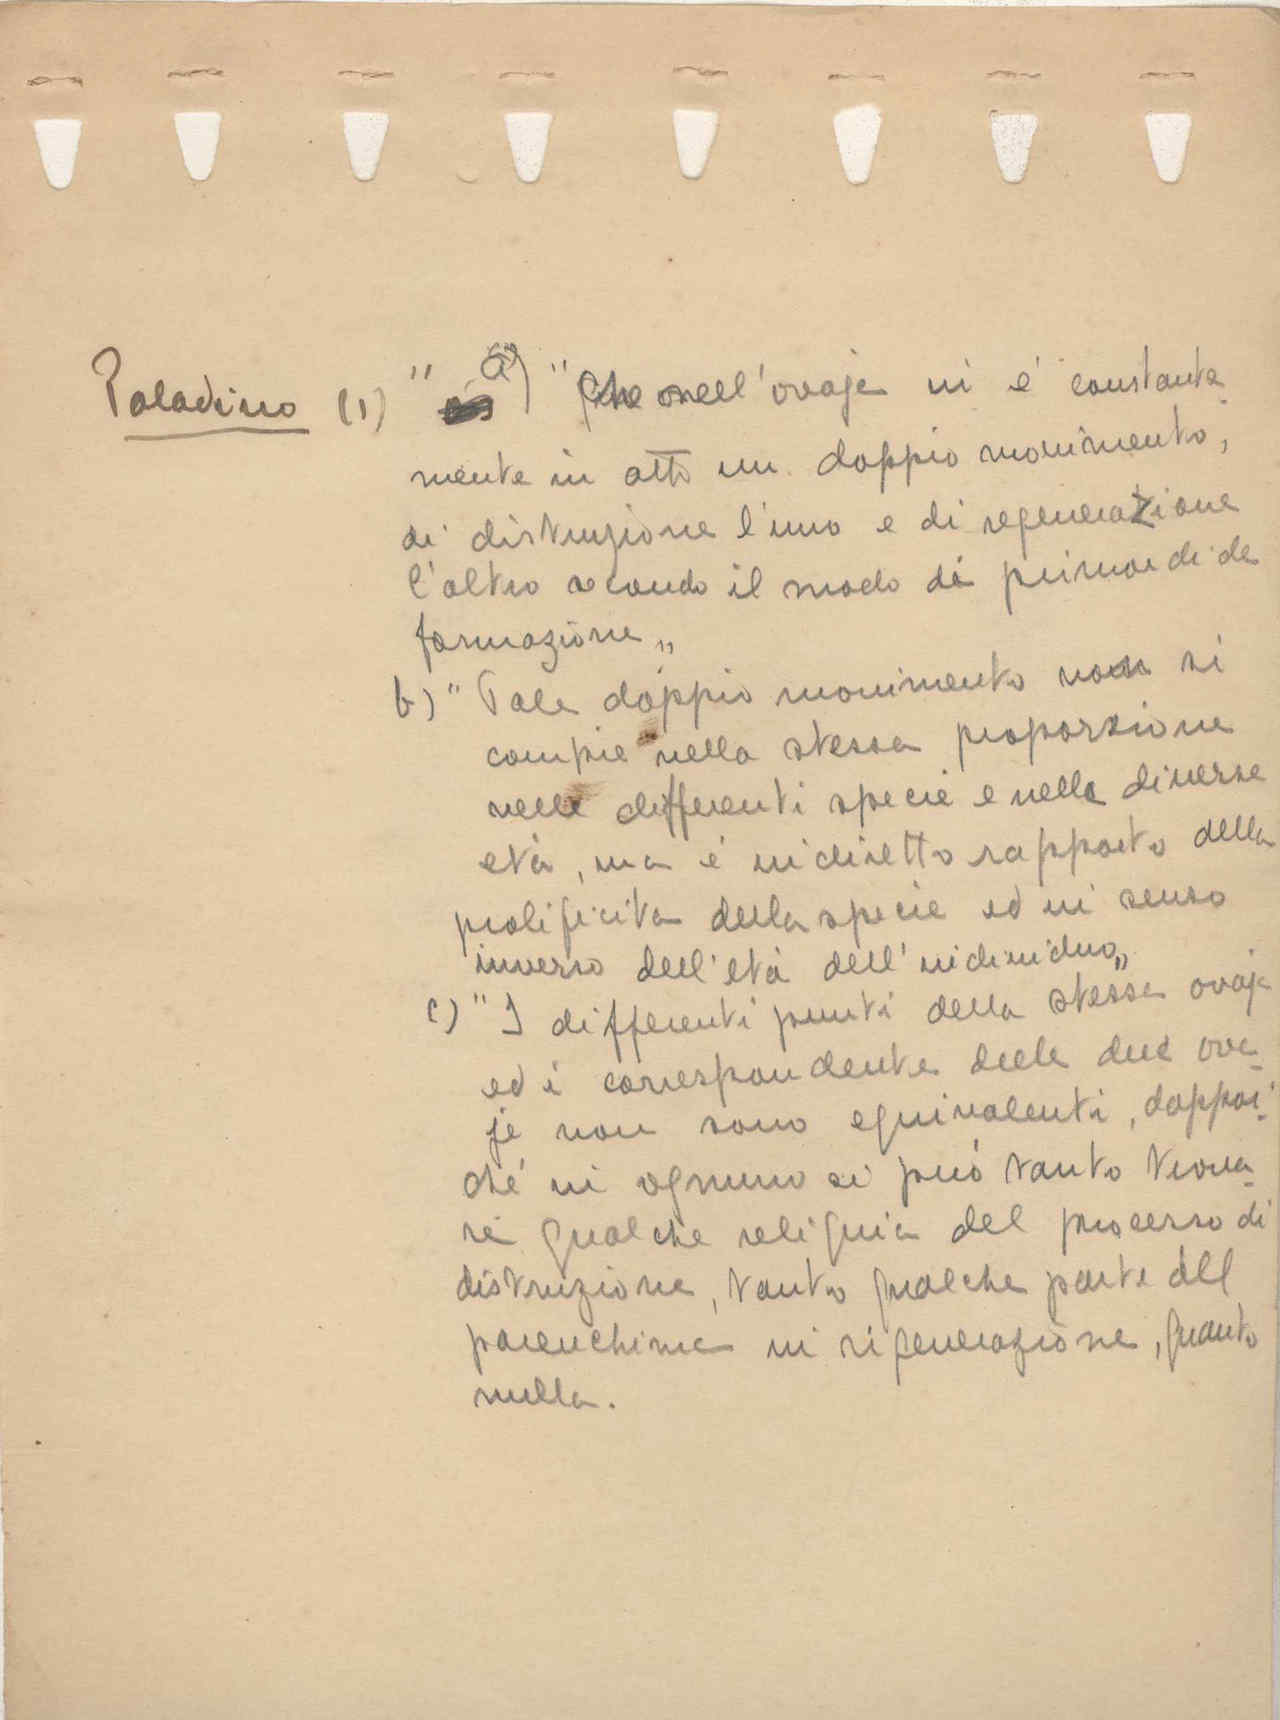 Paladino (1) " a) " Che nell'ovaje vi é constante
mente in atto un doppio movimento,
di distruzione l'uno e di regenerazione
l'altro secondo il modo di primordi de
formazione „
b) " Tale doppio movimento non si
compie nella stessa proporzione
nelle differenti specie e nelle diverse
etá, ma é in diretto rapporto della
prolificita della specie ed in senso
inverso dell'etá dell'individuo „
c) " I differenti punti della stessa ovaje
ed i correspondente delle due ova-
je non sono equivalenti, doppoi-
ché in ognuno si puó tanto trova-
re qualche reliquia del processo di
distruzione, tanto qualche parte del
parenchima in rigenerazione, quanto
nulla.